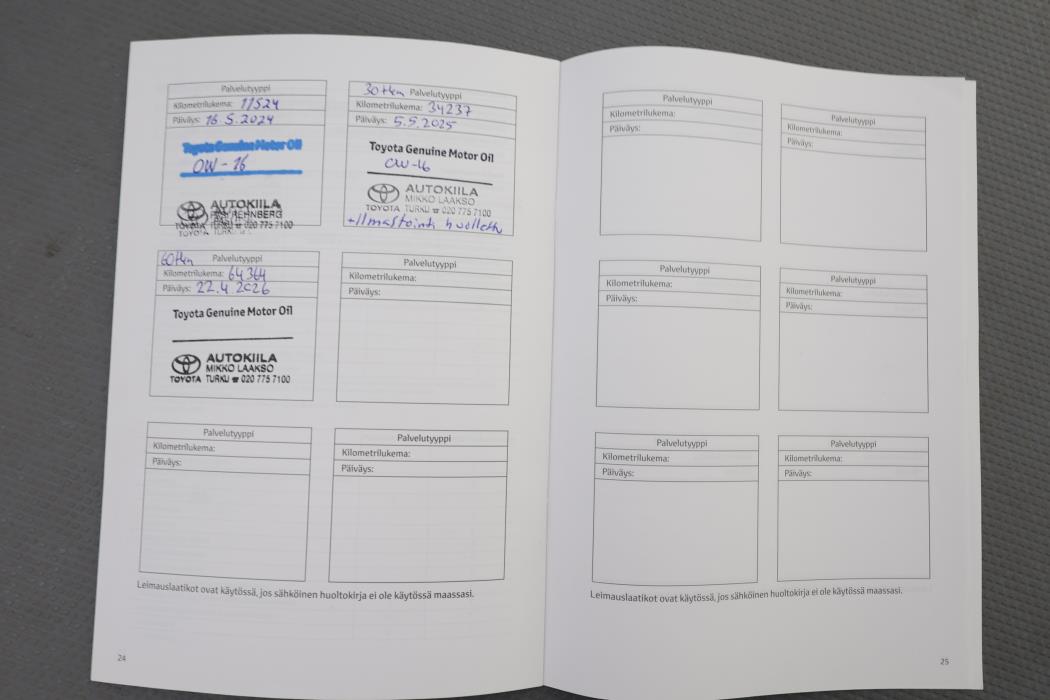 Palvelutyyppi
Kilometrilukema: 17524
Päiväys: 16.5.2024
Toyota Genuine Motor Oil
OW-16
AUTOKIILA
TOYOTA TURKU ☎ 020 775 7100
30tkm Palvelutyyppi
Kilometrilukema: 34237
Päiväys: 5.5.2025
Toyota Genuine Motor Oil
OW-16
AUTOKIILA
MIKKO LAAKSO
TOYOTA TURKU ☎ 020 775 7100
+Ilmastointi huollettu
60tkm Palvelutyyppi
Kilometrilukema: 64364
Päiväys: 22.4.2026
Toyota Genuine Motor Oil
AUTOKIILA
MIKKO LAAKSO
TOYOTA TURKU ☎ 020 775 7100
Palvelutyyppi
Kilometrilukema:
Päiväys:
Palvelutyyppi
Kilometrilukema:
Päiväys:
Palvelutyyppi
Kilometrilukema:
Päiväys:
Leimauslaatikot ovat käytössä, jos sähköinen huoltokirja ei ole käytössä maassasi.
24
Palvelutyyppi
Kilometrilukema:
Päiväys:
Palvelutyyppi
Kilometrilukema:
Päiväys:
Palvelutyyppi
Kilometrilukema:
Päiväys:
Palvelutyyppi
Kilometrilukema:
Päiväys:
Palvelutyyppi
Kilometrilukema:
Päiväys:
Palvelutyyppi
Kilometrilukema:
Päiväys:
Leimauslaatikot ovat käytössä, jos sähköinen huoltokirja ei ole käytössä maassasi.
25